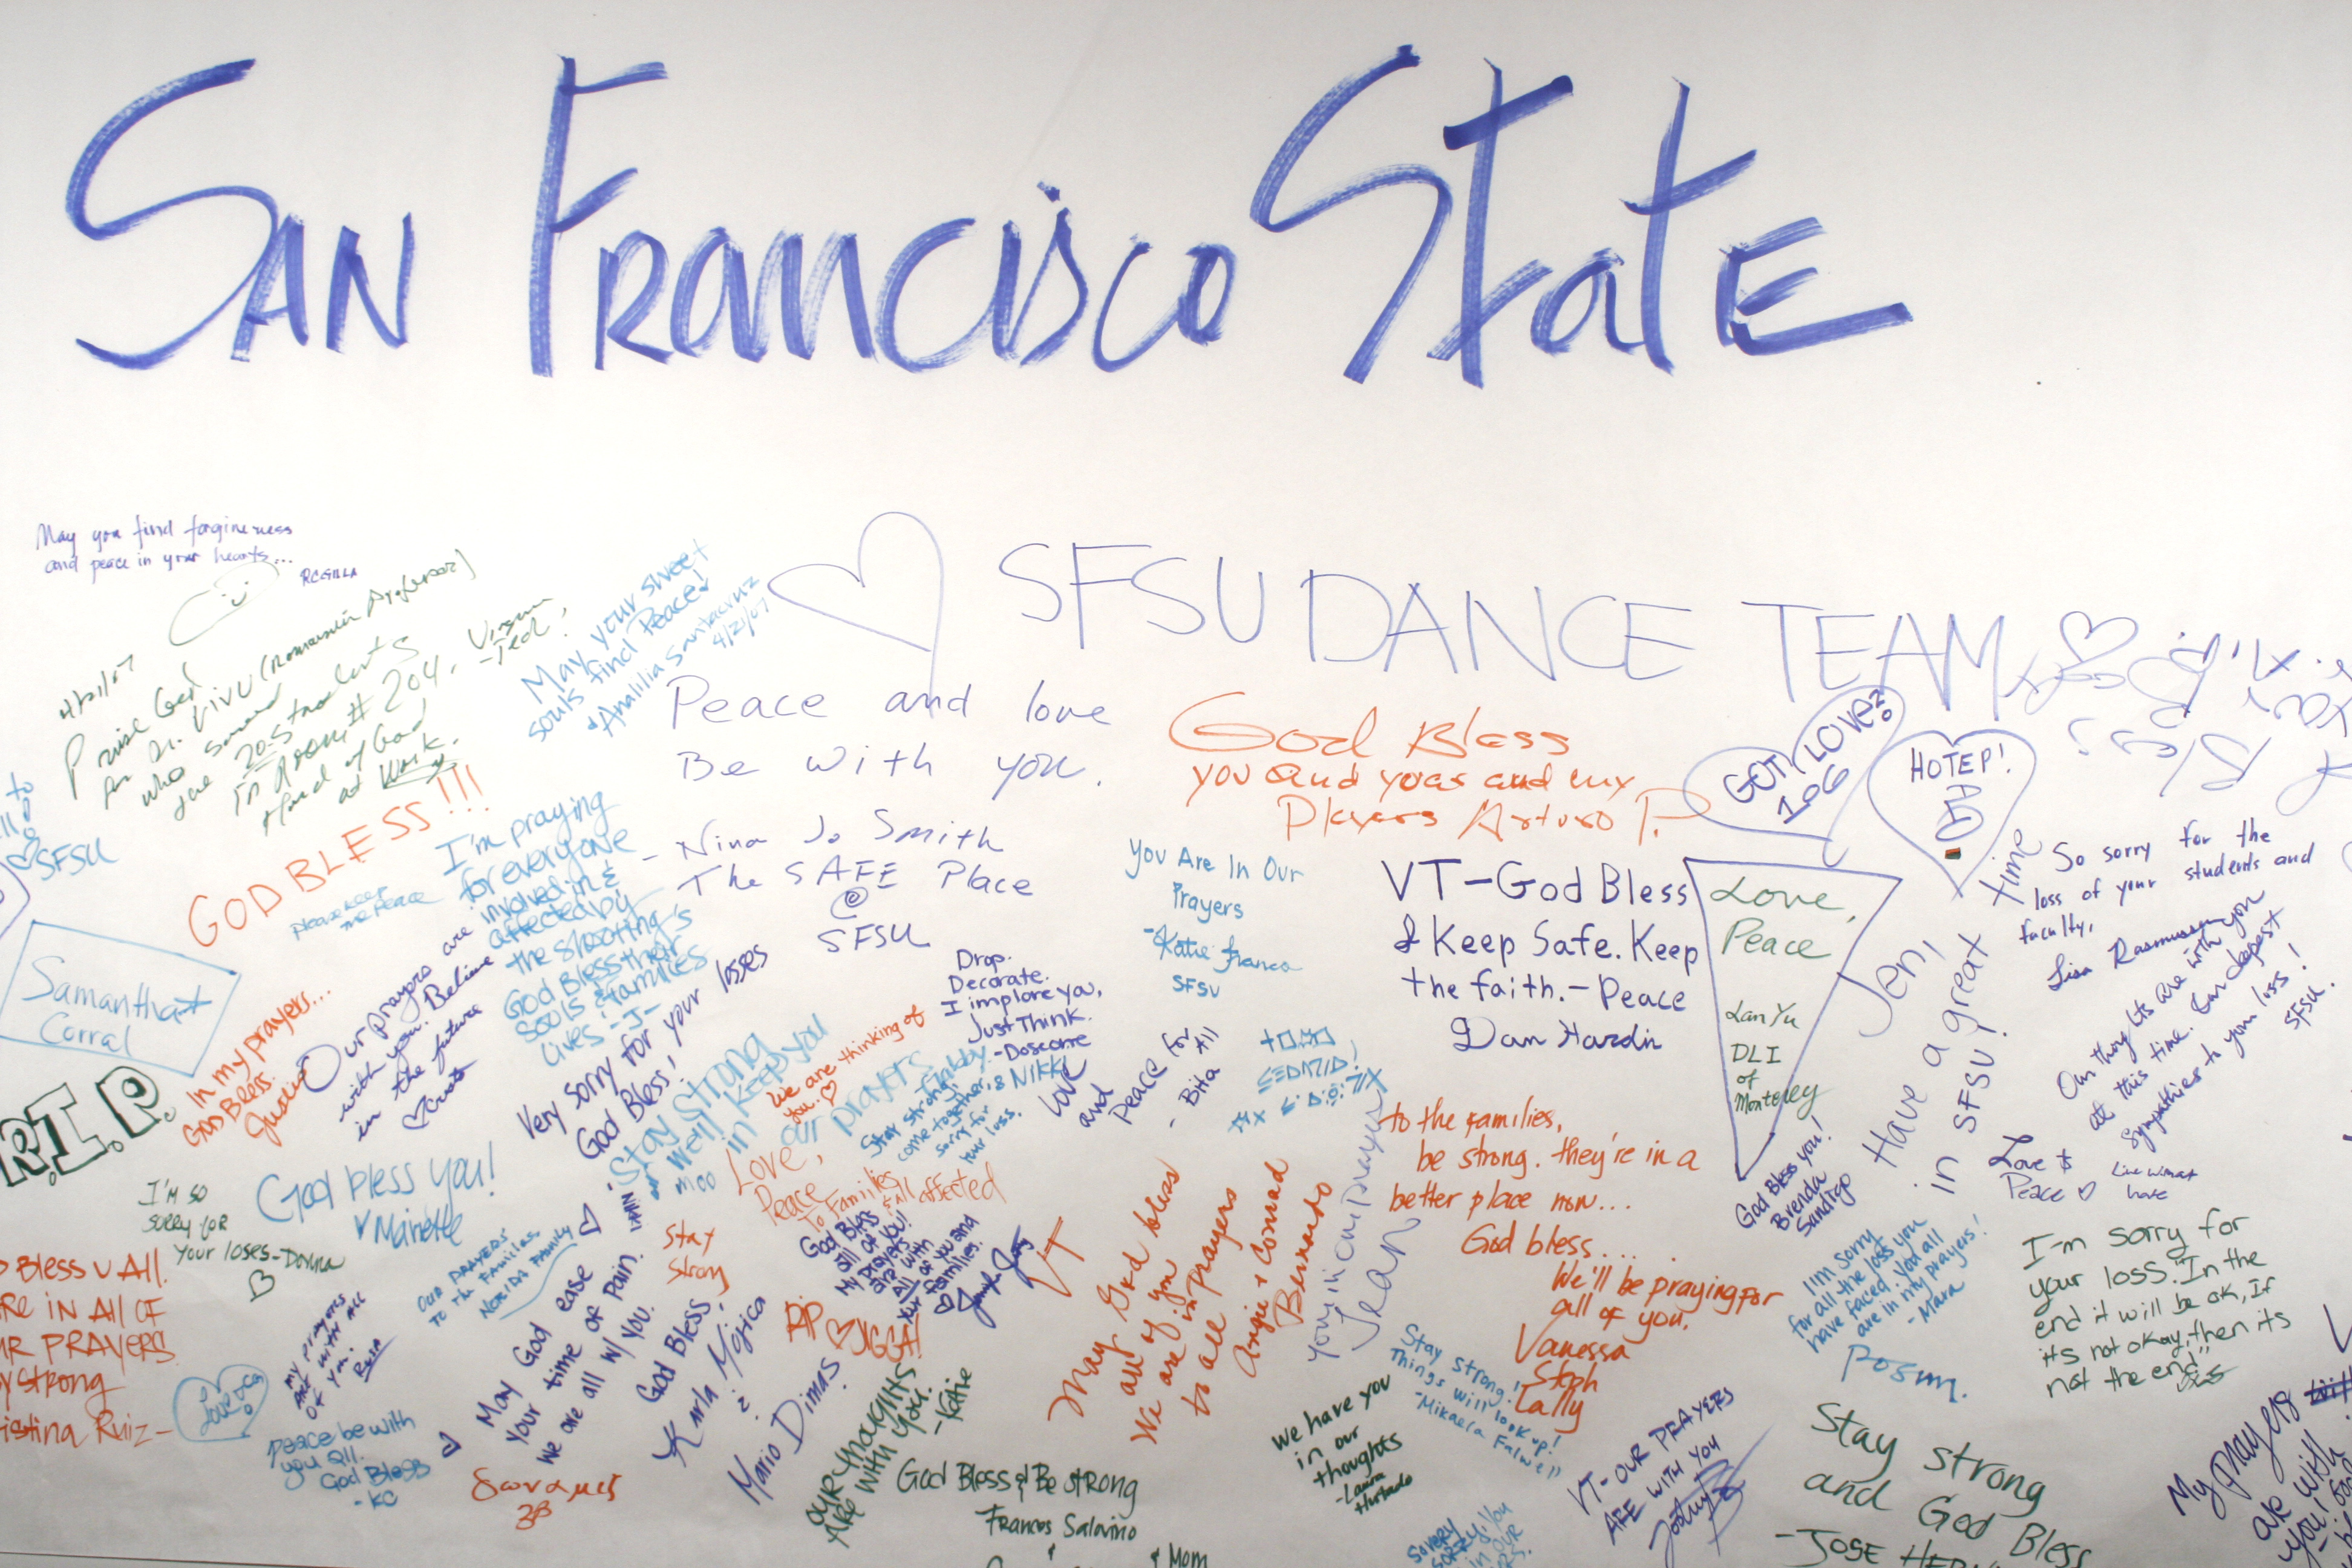 San Francisco State
May you find forgiveness
and peace in your hearts...
4/21/07
Praise God
for Dr. Livu (Romanian Professor)
who saved
the 20.5 students
in Room # 204, Virginia
-Tech,
Hand of God
at Work.
May your sweet
souls find Peace!
Analilia Santacruz
4/21/07
SFSU DANCE TEAM
Peace and love
Be with you.
- Nina Jo Smith
The SAFE Place
@
SFSU
God Bless
you and yours and my
Arturo P.
GOT LOVE?
HOTEP!
SFSU
GOD BLESS!!!
I'm praying
for everyone
involved in &
affected by
the shooting's
God Bless their
souls & families
lives -J-
You Are In Our
Prayers
-Katie Franco
SFSU
VT-God Bless
& Keep Safe. Keep
the faith. - Peace
Dan Hardin
Love,
Peace
Lan Yu
DLI
of
Monterey
Jen,
Have a great time
in SFSU!
So sorry for the
loss of your students and
faculty,
Lisa Rasmussen
Our thoughts are with you
at this time. Our deepest
sympathies to your loss!
SFSU.
Samantha
Corral
In my prayers...
God Bless.
Our prayers are
with you. Believe
in the future
Very sorry for your losses
God Bless,
Drop.
Decorate.
I implore you,
Just Think.
We are thinking of
you.
Stay strong
in our prayers
Stay strong,
come together, &
sorry for
your loss.
Nikki
Love
and
Peace for All
- Bita
R.I.P.
God bless you!
Mariette
I'm so
sorry for
your loses-Donna
Love,
Peace
To Families
& All affected
to the families,
be strong. they're in a
better place now...
God bless....
We'll be praying for
all of you.
Vanessa
Steph
Lally
God Bless you!
Brenda
Sandigo
Love &
Peace
I'm sorry for
your loss. "In the
end it will be ok, if
it's not okay, then its
not the end"
I'm sorry
for all the loss you
have faced. You all
are in my prayers!
- Mara
Bless U All.
in All OF
PRAYERS
Strong
Ruiz-
OUR PRAYERS
TO the Families.
Stay
Strong
God Bless
all of you!
My prayers
are with
All of you and
your families.
VT
May God bless
all of you
We are in Prayers
to all
Angie + Conrad
Bernardo
your in our prayers
Jean
my prayers
are with all
of you.
May God ease
your time of pain.
we are all w/ you.
God Bless,
Karla Mojica
&
Mario Dimas
RIP JIGGA!
Peace be with
you all.
God Bless
- KC
OUR thoughts
ARE WITH YOU.
-Katie
God Bless & Be strong
Francis Salavino
& Mom
We have you
in our
thoughts
-Laura
Hurtado
Stay strong!
Things will look up!
-Mikaela Falwell
VT- OUR PRAYERS
ARE WITH YOU
Stay strong
and God Bless
-JOSE
My prayers
are with
you!